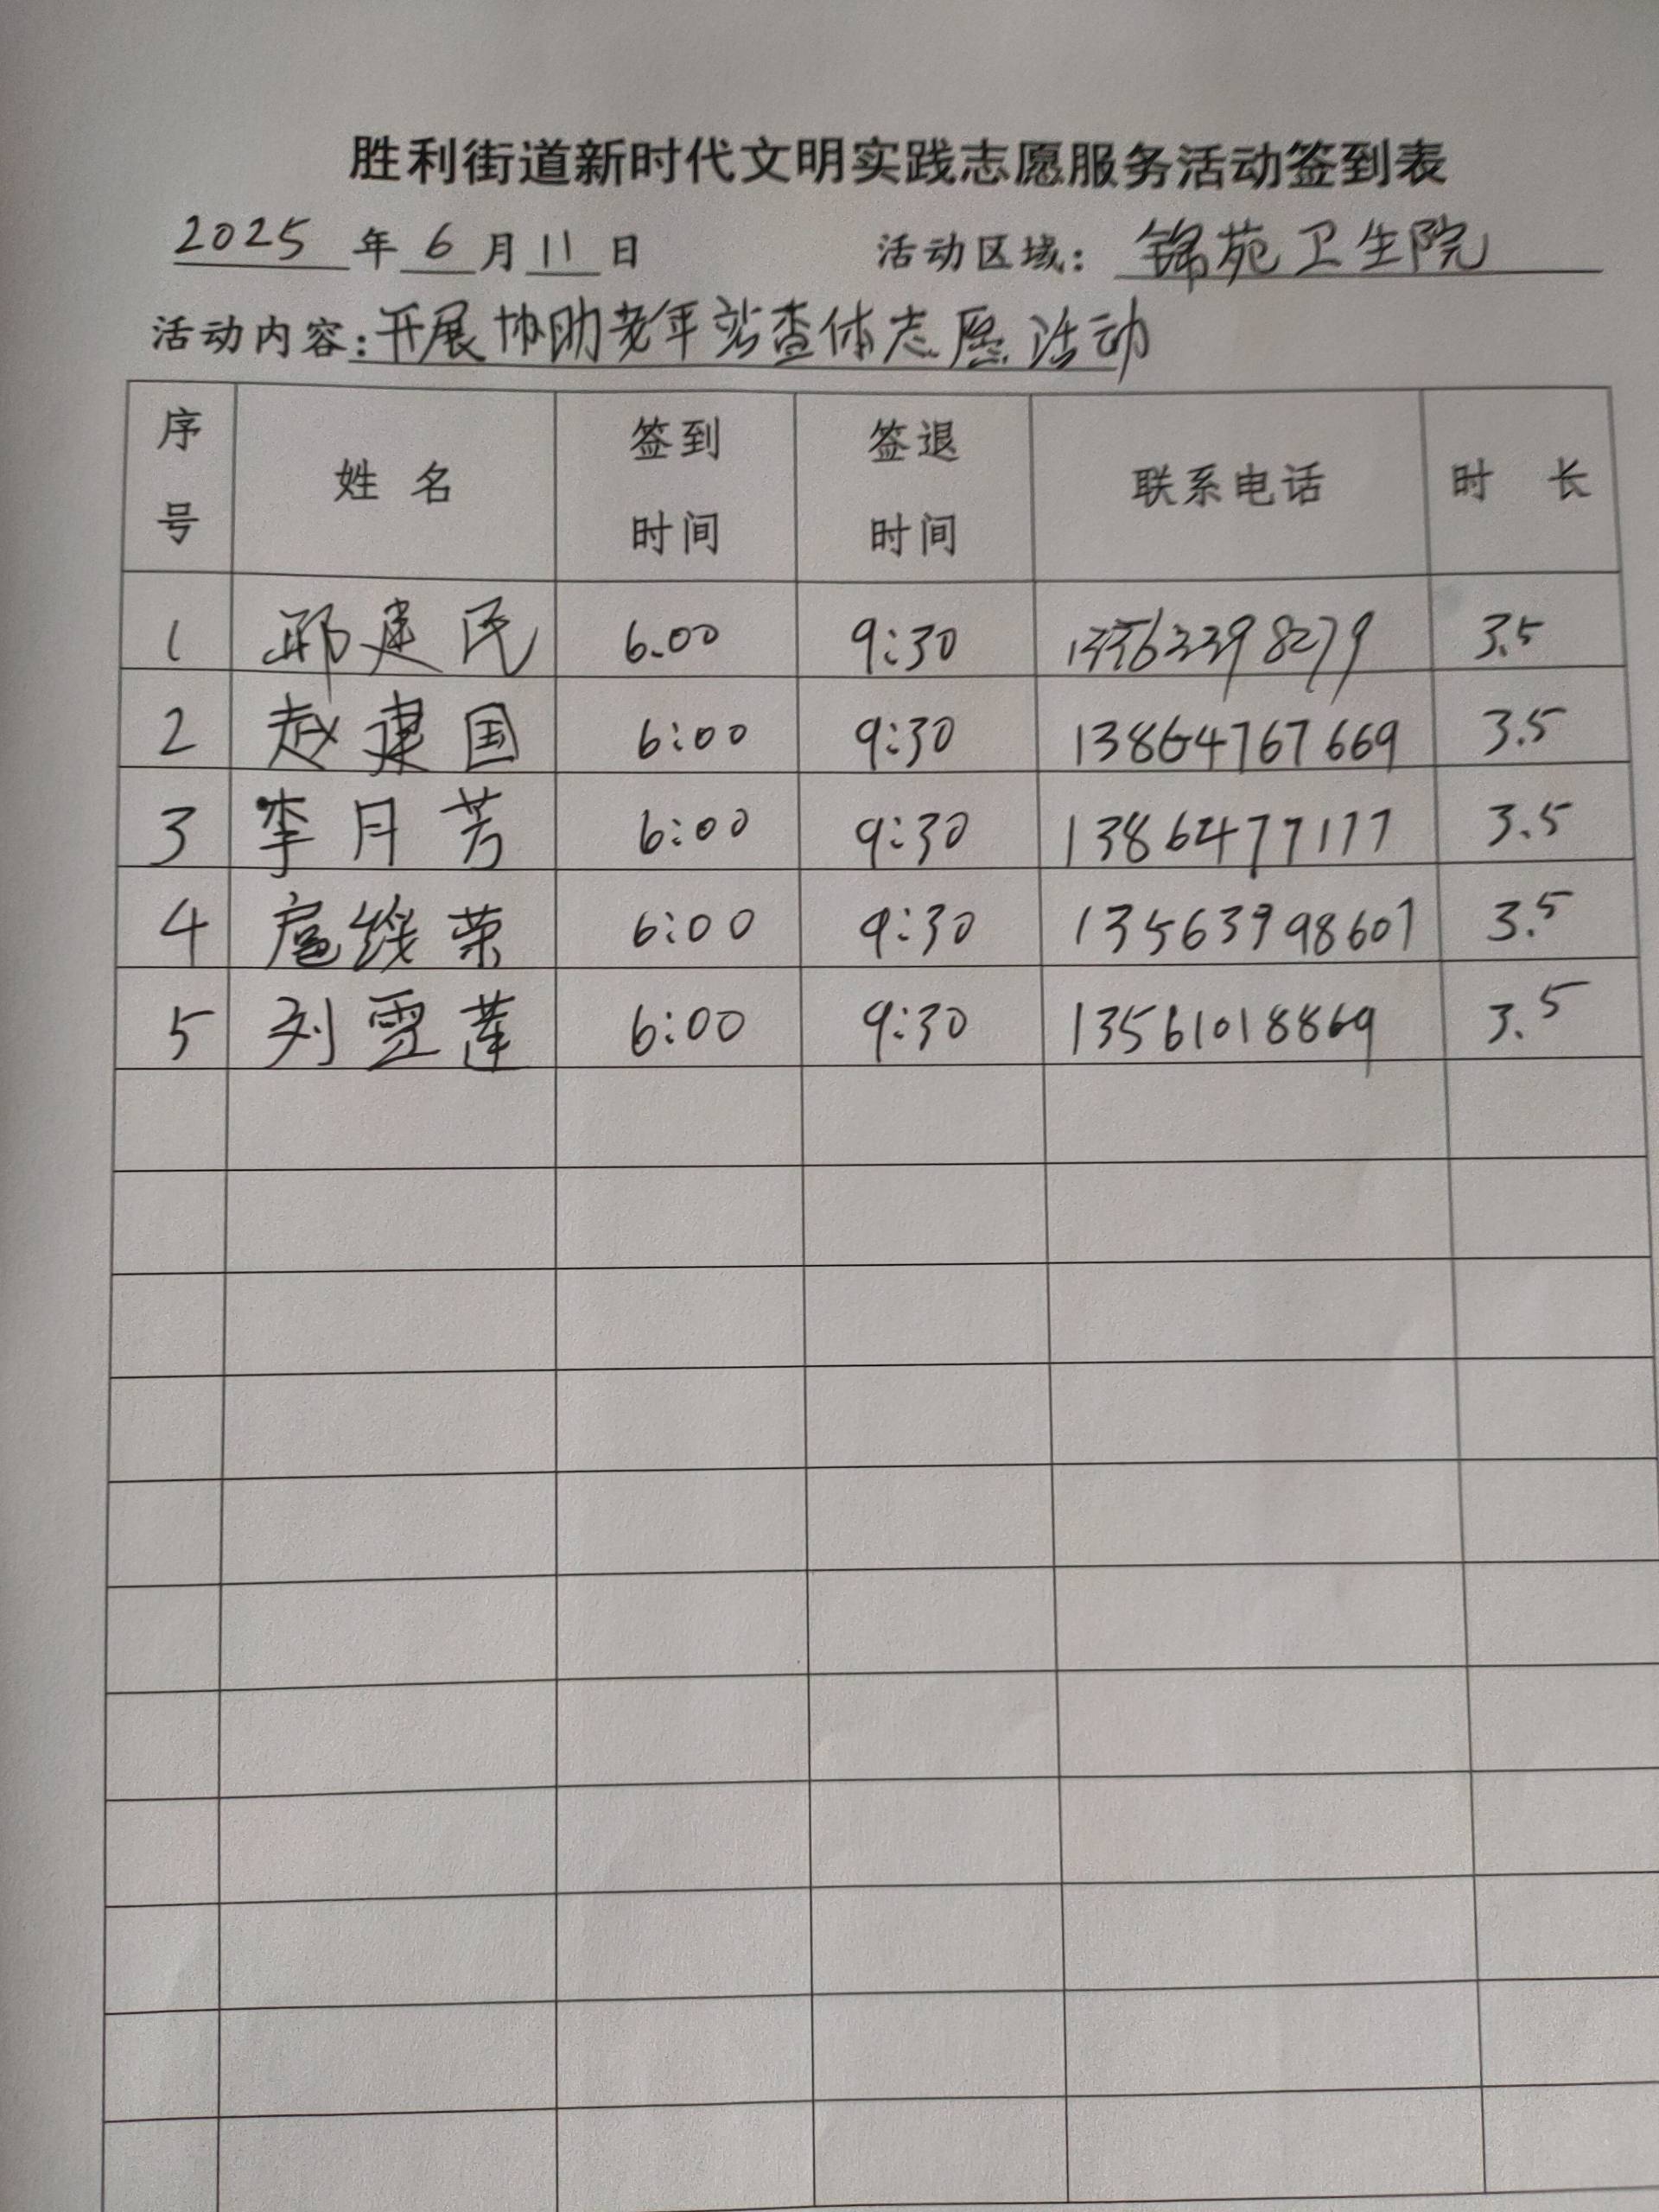 胜利街道新时代文明实践志愿服务活动签到表
2025 年 6 月 11 日 活动区域: 锦苑卫生院
活动内容: 开展协助老年站查体志愿活动
序号 姓名 签到时间 签退时间 联系电话 时长
1 邱建民 6.00 9:30 3.5
2 赵建国 6:00 9:30 13864767669 3.5
3 李月芳 6:00 9:30 1386477177 3.5
4 荣 6:00 9:30 13563998607 3.5
5 刘雪莲 6:00 9:30 13561018869 3.5